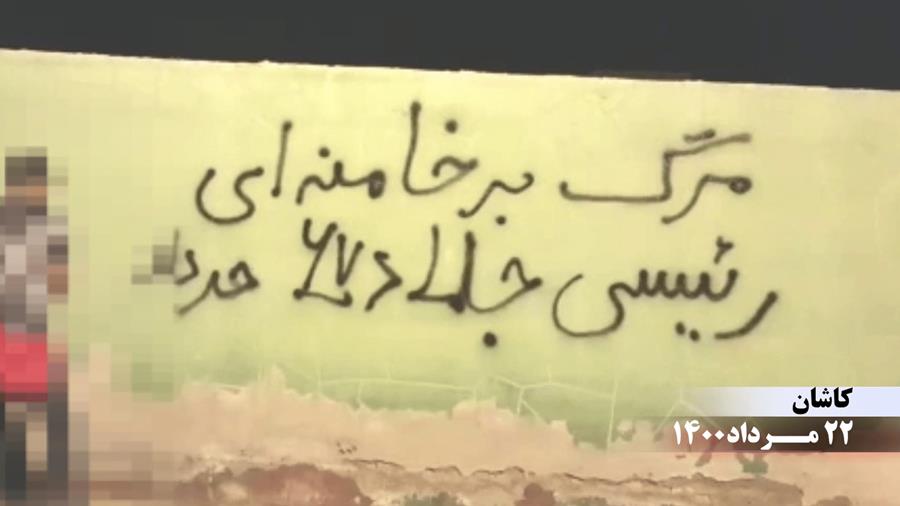 مرگ بر خامنه ای
رئیسی جلاد ۶۷
کاشان
۲۲ مــرداد ۱۴۰۰